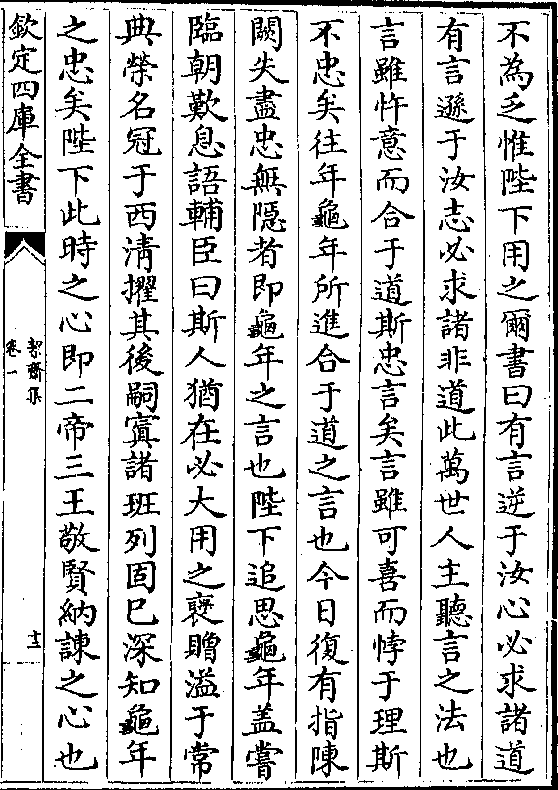 不為乏惟陛下用之爾書曰有言逆于汝心必求諸道
有言遜于汝志必求諸非道此萬世人主聽言之法也
言雖忤意而合于道斯忠言矣言雖可喜而悖于理斯
不忠矣往年龜年所進合于道之言也今日復有指陳
闕失盡忠無隱者即龜年之言也陛下追思龜年盖嘗
臨朝歎息語輔臣曰斯人猶在必大用之襃贈溢于常
典榮名冠于西清擢其後嗣寘諸班列固已深知龜年
之忠矣陛下此時之心即二帝三王敬賢納諫之心也
欽定四庫全書
絜齋集
卷一
十三